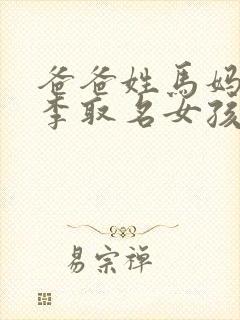 爸爸姓馬妈
李取名女孩
易宗禅